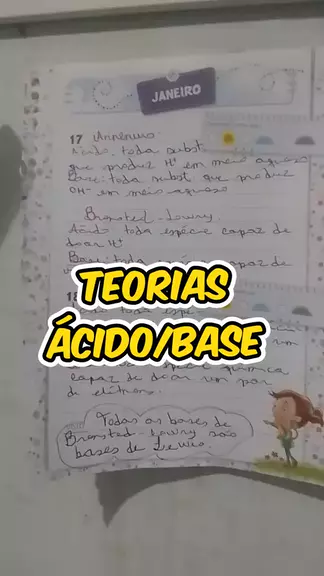 JANEIRO
17 Arrhenius
Ácido: toda subst
que produz H+ em meio aquoso
Base: toda subst que produz
OH- em meio aquoso
Bronsted-Lowry
Ácido toda espécie capaz de
doar H+
Base: toda capaz de
TEORIAS
ÁCIDO/BASE
18
um
química
capaz de doar um par
de elétrons.
Todas as bases de
Bronsted-Lowry são
bases de Lewis.